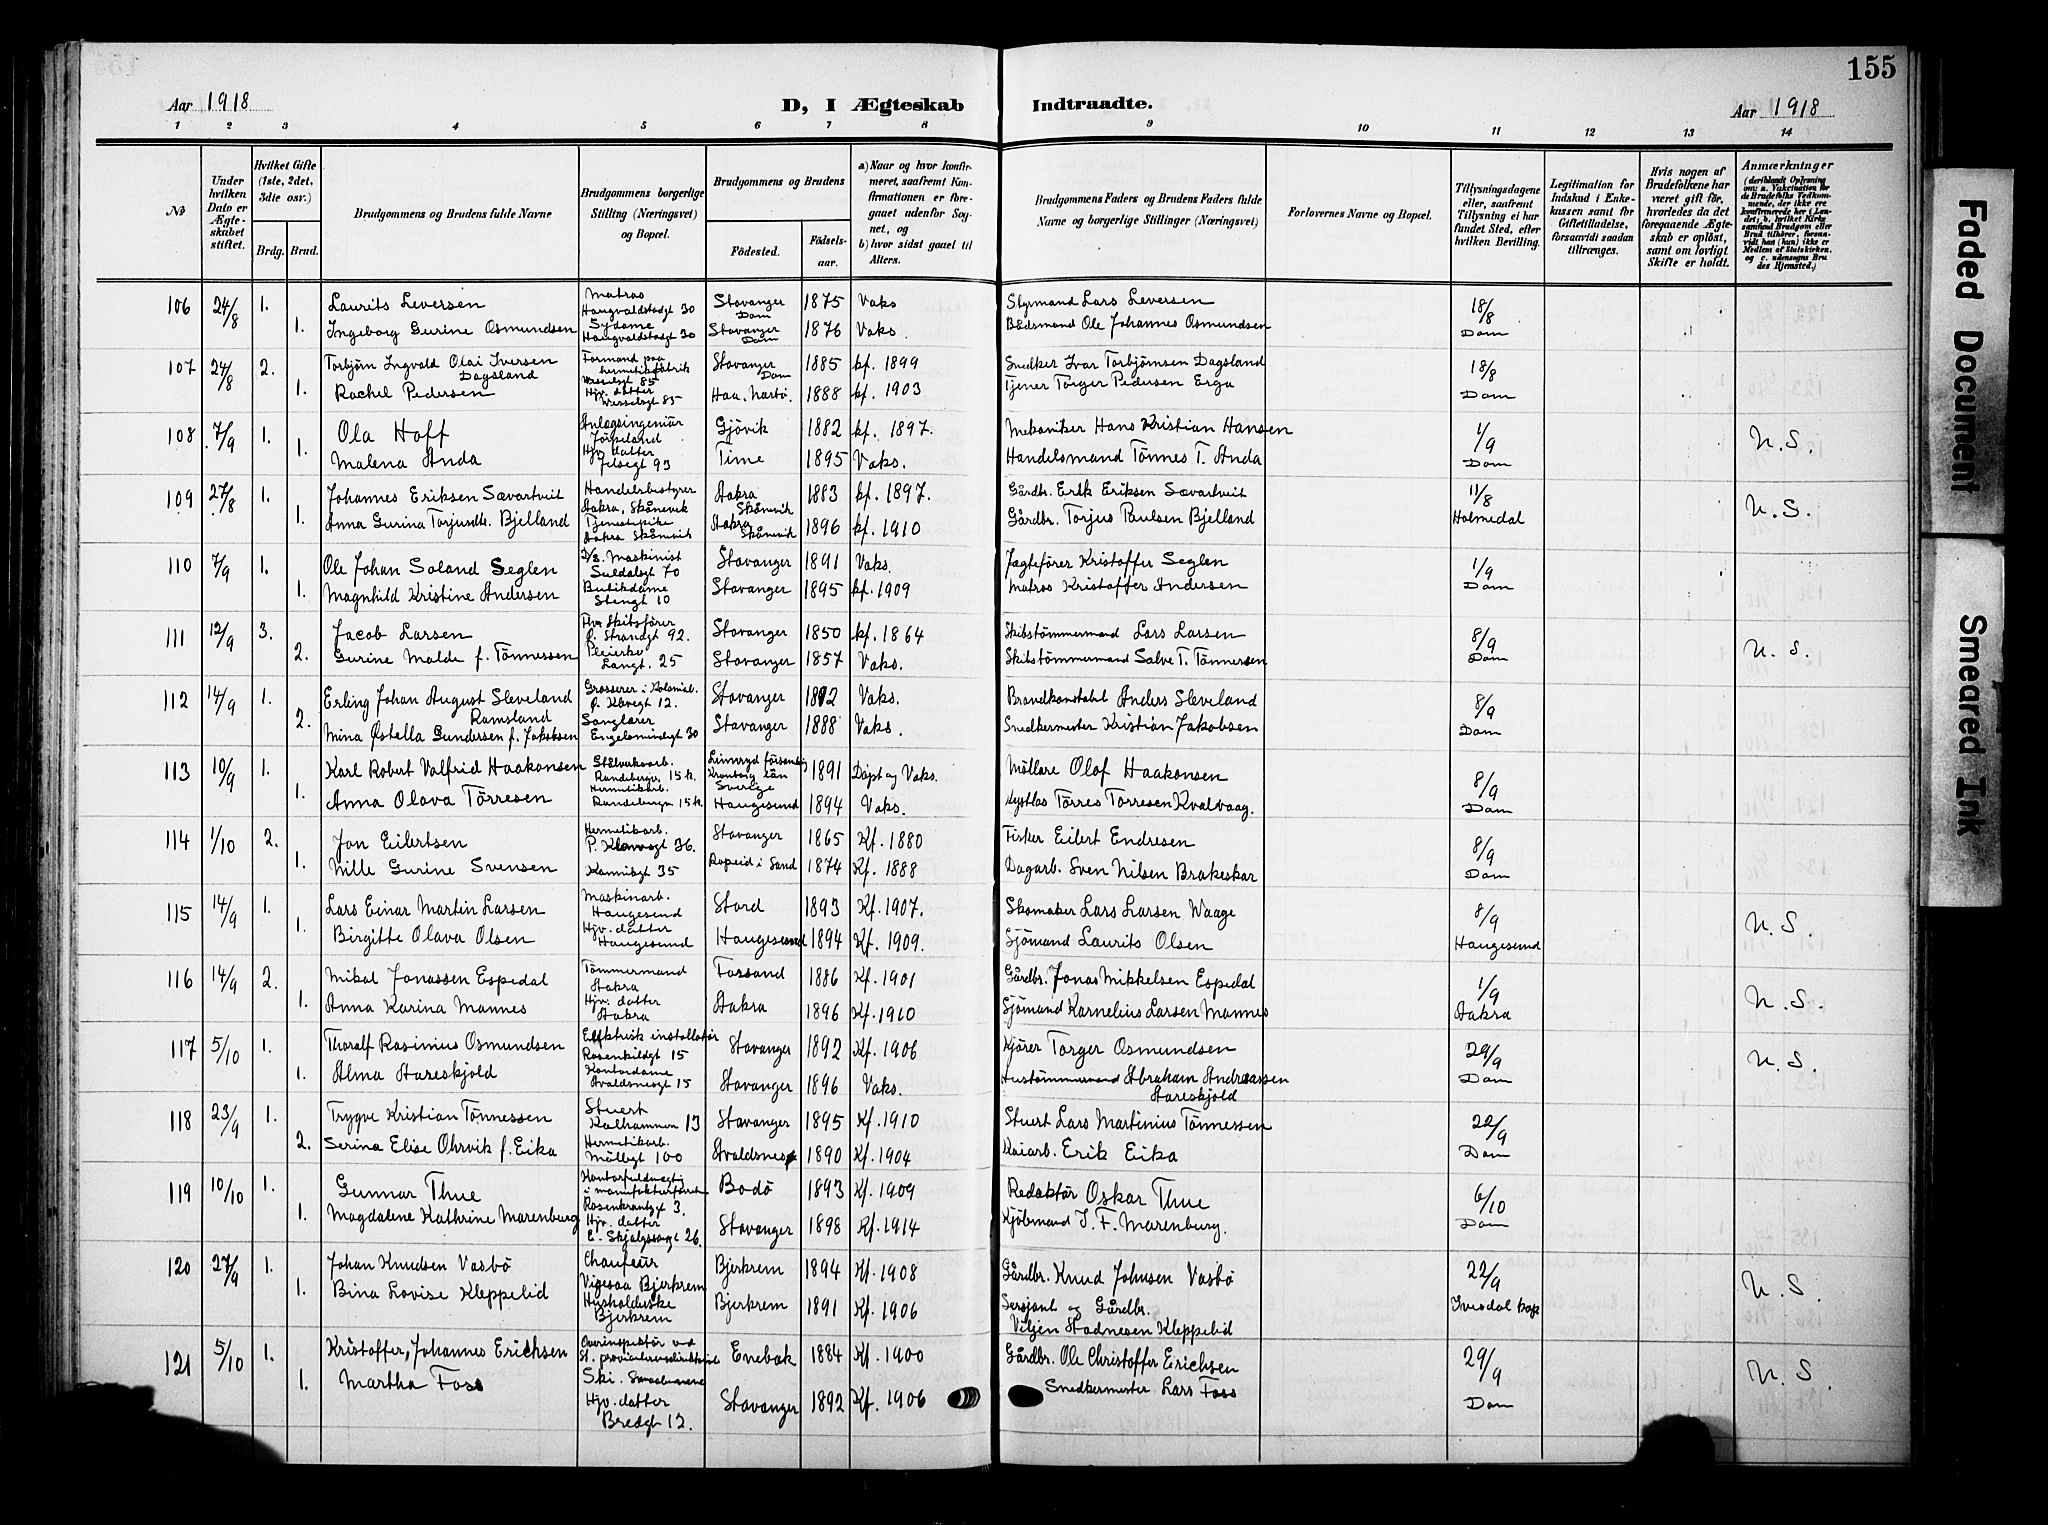 155
Aar 1918
D, I Ægteskab Indtraadte.
Aar 1918
1 2 3 4 5 6 7 8 9 10 11 12 13 14
No
Under hvilken Dato er Ægteskabet stiftet.
Hvilket Gifte (1ste, 2det, 3dte osv.)
Brdg. Brud.
Brudgommens og Brudens fulde Navne
Brudgommens borgerlige Stilling (Næringsvei) og Bopæl.
Brudgommens og Brudens
Födested. Födsels-aar.
a) Naar og hvor konfirmeret, saafremt Konfirmationen er foregaaet udenfor Sognet, og
b) hvor sidst gaaet til Alters.
Brudgommens Faders og Brudens Faders fulde Navne og borgerlige Stillinger (Næringsvei)
Forlovernes Navne og Bopæl.
Tillysningsdagene eller, saafremt Tillysning ei har fundet Sted, efter hvilken Bevilling.
Legitimation for Indskud i Enkekassen samt for Giftetilladelse, forsaavidt saadan tiltrænges.
Hvis nogen af Brudefolkene har været gift för, hvorledes da det foregaaende Ægteskab er oplöst, samt om lovligt Skifte er holdt.
Anmærkninger
106 24/8 1. Laurits Leversen Matros Haugvaldstadgt 30 Stavanger Dom 1875 Vaks Styrmand Lars Leversen 18/8
1. Ingeborg Gurine Osmundsen Sydame Haugvaldstadgt 30 Stavanger Dom 1876 Vaks. Baadsmand Ole Johannes Osmundsen Dom
107 24/8 2. Torbjörn Ingvald Olai Iversen Dagsland Formand paa hermetikfabrik Wesselsgt 85 Stavanger Dom 1885 kf. 1899 Snedker Ivar Torbjörnsen Dagsland 18/8
1. Rachel Pedersen Hjv. datter Wesselsgt 85 Haa. Narbö. 1888 kf. 1903 Tjener Torger Pedersen Erga Dom
108 7/9 1. Ola Hoff Anlægsingeniör Jörpeland Gjövik 1882 kf. 1897. Mekaniker Hans Kristian Hansen 1/9 U.S.
1. Malena Anda Hjv. datter Jelsegt 93 Time 1895 Vaks. Handelsmand Tönnes T. Anda Dom
109 27/8 1. Johannes Eriksen Sævartveit Handelsbestyrer Aakra, Skånevik Aakra Skånevik 1883 kf. 1897. Gårdbr. Erik Eriksen Sævartveit 11/8 U.S.
1. Anna Gurina Torjusdtr. Bjelland Tjenestepike Aakra Skånevik Aakra Skånevik 1896 kf. 1910 Gårdbr. Torjus Paulsen Bjelland Holmedal
110 7/9 1. Ole Johan Soland Seglen D/S. Maskinist Suldalsgt 70 Stavanger 1891 Vaks. Jægtefører Kristoffer Seglen 1/9
1. Magnhild Kristine Andersen Butikdame Stengt 10 Stavanger 1895 kf. 1909 Matros Kristoffer Andersen Dom
111 12/9 3. Jacob Larsen Skibsfører Ø. Strandgt 92. Stavanger 1850 kf. 1864 Skibstömmermand Lars Larsen 8/9 U.S.
2. Gurine Malde f. Tönnessen Pleierke Langt. 25 Stavanger 1857 Vaks. Skibstömmermand Salve T. Tönnesen Dom
112 14/9 1. Erling Johan August Sleveland Grosserer i Kolonial. Ø. 12. Stavanger 1892 Vaks. Brandkonstabel Anders Sleveland 8/9
2. Mina Østella Gundersen f. Jakobsen Ramsland Sanglærer Engelsmindegt 30 Stavanger 1888 Vaks. Snedkermester Kristian Jakobsen Dom
113 10/9 1. Karl Robert Valfrid Haakonsen Stålverksarb. Randebergv. 15 k. Kronborg län Sverige 1891 Döpt og Vaks. Möllare Olof Haakonsen 8/9
1. Anna Olava Törresen Hermetikarb. Randebergv 15 k. Haugesund 1894 Vaks. Törres Torresen Kvalvaag. Dom
114 1/10 2. Jon Eilertsen Hermetikarb. P. Klowsgt 36. Stavanger 1865 Kf. 1880 Fisker Eilert Endresen 8/9
1. Nille Gurine Svensen Kannikgt 35 Ropeid i Sand 1874 Kf. 1888 Dagarb. Sven Nilsen Brakeskar Dom
115 14/9 1. Lars Einar Martin Larsen Maskinarb. Haugesund Stord 1893 Kf. 1907. Skomaker Lars Larsen Waage 8/9 U.S.
1. Birgitte Olava Olsen Hjv. datter Haugesund Haugesund 1894 Kf. 1909. Sjömand Laurits Olsen Haugesund
116 14/9 2. Mikal Jonassen Espedal Tömmermand Aakra Forsand 1886 Kf. 1901 Gårdbr. Jonas Mikkelsen Espedal 1/9 U.S.
1. Anna Karina Mannes Hjv. datter Aakra Aakra 1896 Kf. 1910 Sjömand Kornelius Larsen Mannes Aakra
117 5/10 1. Thoralf Rasinius Osmundsen Elektrisk installatör Rosenkildgt 15 Stavanger 1892 Kf. 1906 Kjörer Torger Osmundsen 29/9 U.S.
1. Alma Aareskjold Kontordame Avaldsnesgt 15 Stavanger 1896 Vaks. Hustömmermand Abraham Andreassen Aareskjold Dom
118 23/9 1. Trygve Kristian Tönnessen Stuert Kalhammen 13 Stavanger 1895 Kf. 1910 Stuert Lars Martinius Tönnessen 22/9
2. Serina Elise Ohrvik f. Eika Hermetikarb. Möllegt 100 Avaldsnes 1890 Kf. 1904 Kaiarb. Erik Eika Dom
119 10/10 1. Gunnar Thue Kontorfuldmægtig i manufakturforretn. Rosenkrantzgt 3. Bodö 1893 Kf. 1909 Redaktör Oskar Thue 6/10
1. Magdalene Kathrine Marenburg Hjv. datter E. Skjalgssongt 26. Stavanger 1898 Kf. 1914 Kjöbmand J. F. Marenburg. Dom
120 27/9 1. Johan Knudsen Vasbö Chaufeur Vigesaa Bjerkrem Bjerkrem 1894 Kf. 1908 Gårdbr. Knud Johnsen Vasbö 22/9 U.S.
1. Bina Lovise Kleppelid Husholderske Bjerkrem Bjerkrem 1891 Kf. 1906 Sersjant og Gårdbr. Viljen Stadnesen Kleppelid Ivesdal kap
121 5/10 1. Kristoffer Johannes Erichsen Overinspektör ved St. proviantersdirektorat Ski. Smaalenene Enebak 1884 Kf. 1900 Gårdbr. Ole Christoffer Erichsen 29/9 U.S.
1. Martha Foss Hjv. datter Bredgt 12. Stavanger 1892 Kf. 1906 Snedkermester Lars Foss Dom
Faded Document
Smeared Ink